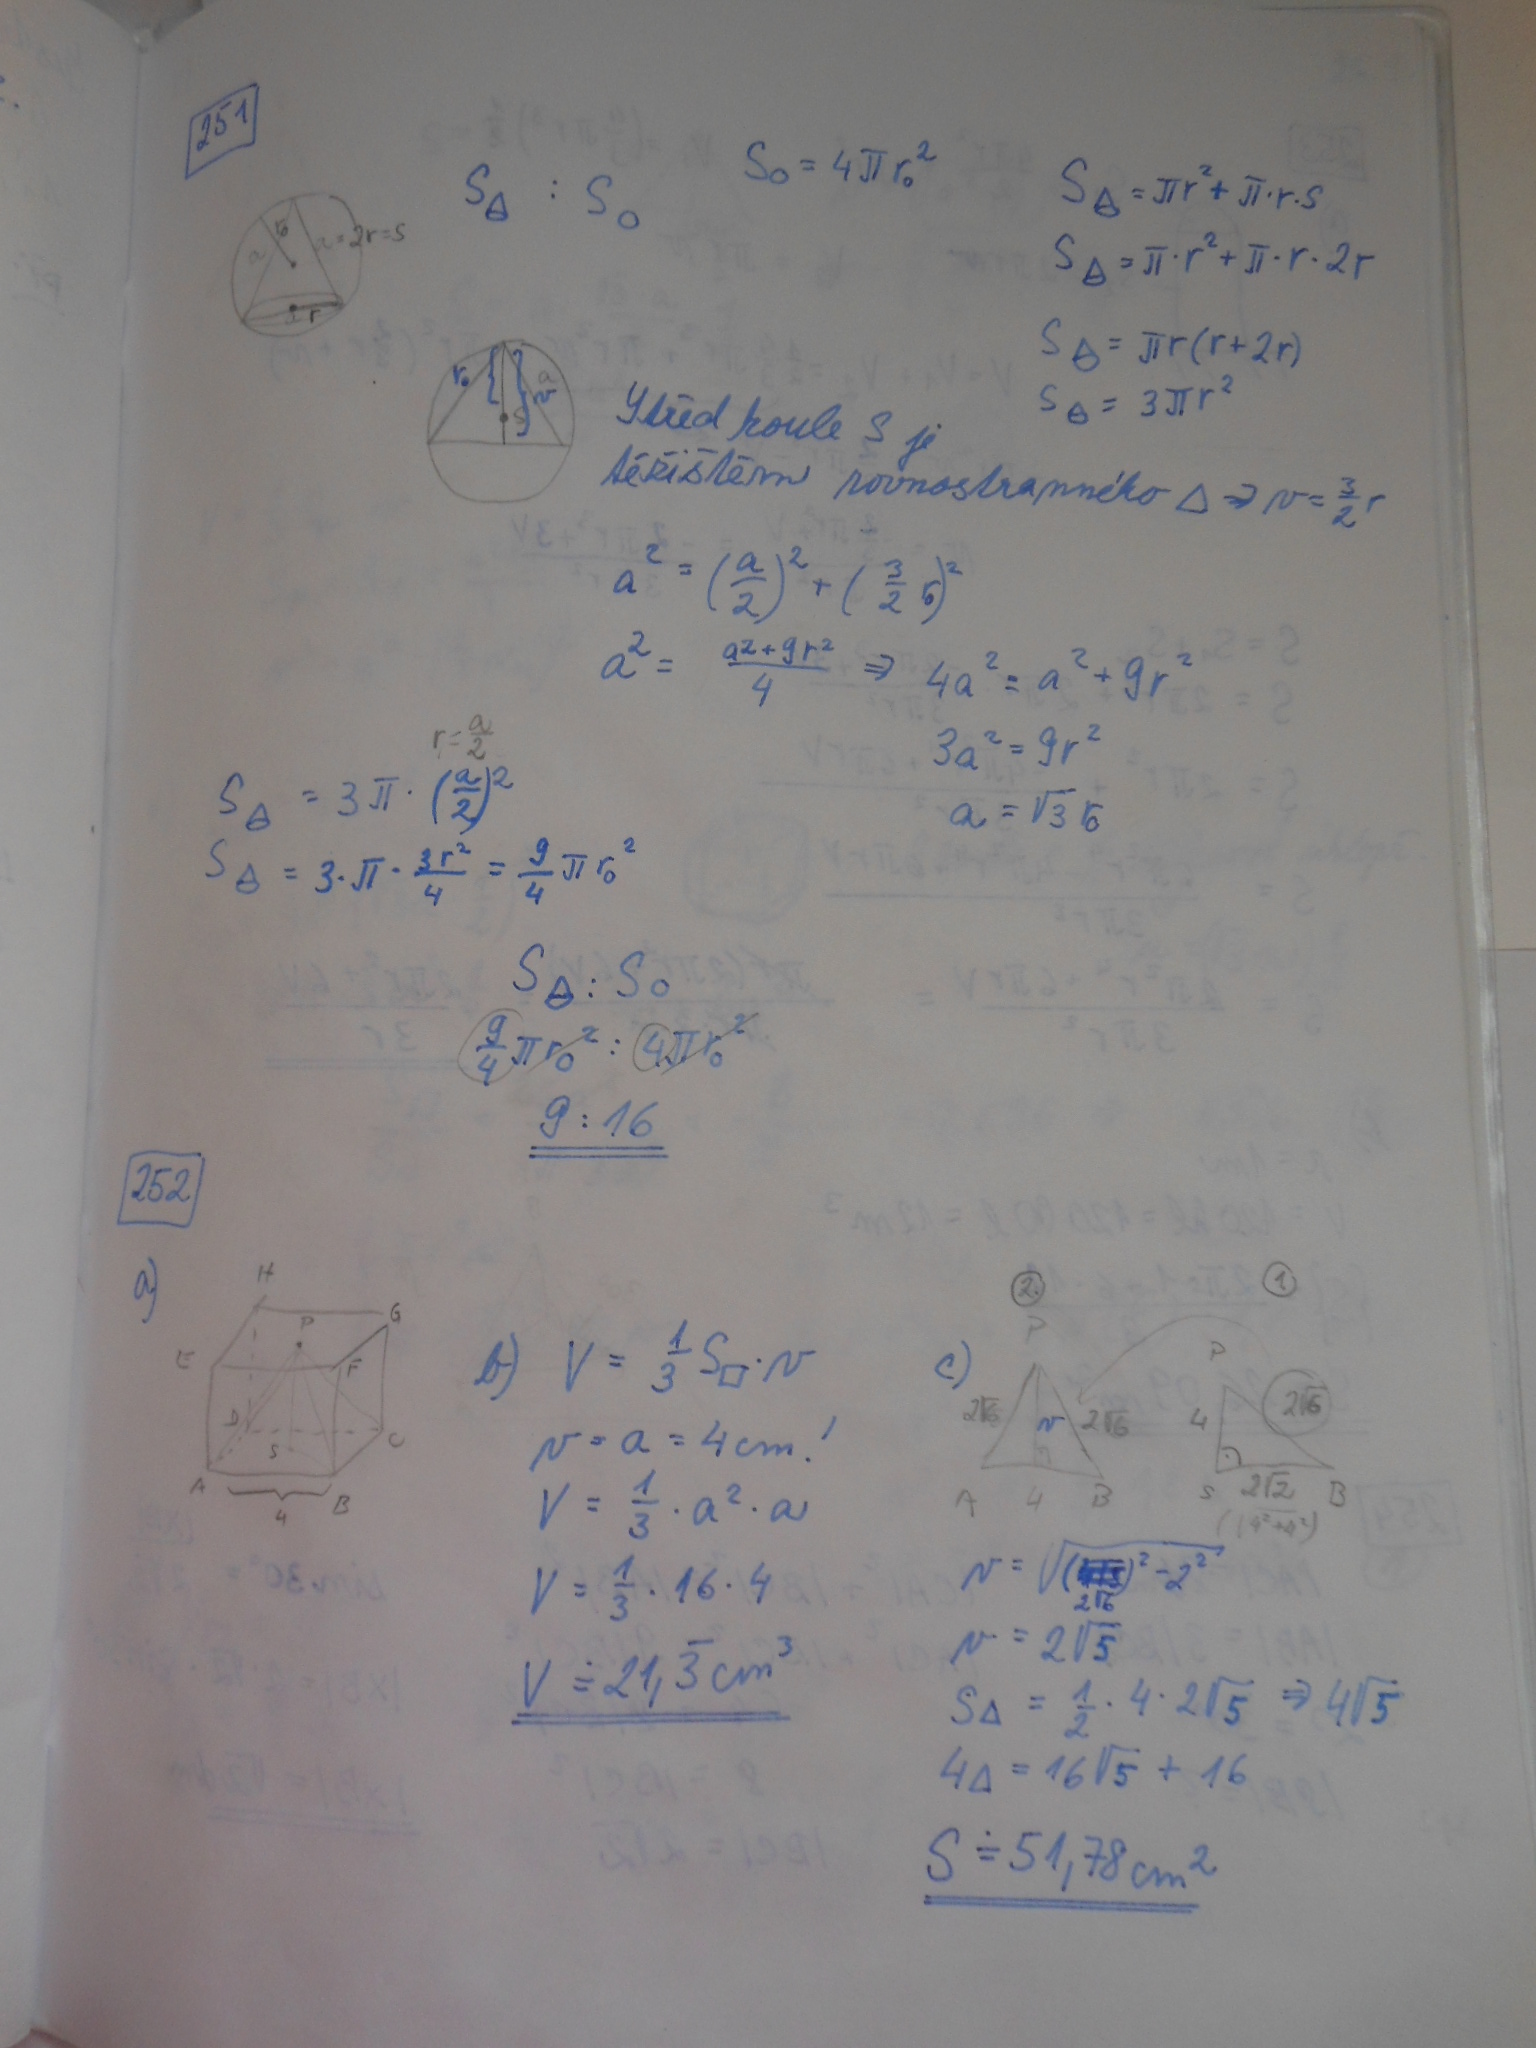 251
S△ : S○
S○ = 4πr₀²
S△ = πr² + π·r·s
S△ = π·r² + π·r·2r
S△ = πr(r+2r)
S△ = 3πr²
r₀
a
a=2r=s
r
r₀
a
v
S
Střed koule S je
těžištěm rovnostranného △ ⇒ v = 3/2 r
a² = (a/2)² + (3/2 r₀)²
a² = (a²+9r²)/4 ⇒ 4a² = a² + 9r²
3a² = 9r²
a = √3 r₀
r = a/2
S△ = 3π·(a/2)²
S△ = 3·π·3r²/4 = 9/4 πr₀²
S△ : S○
9/4 πr₀² : 4πr₀²
9 : 16
252
a)
H
P
G
E
F
D
S
C
A
B
4
b) V = 1/3 S□·v
v = a = 4cm!
V = 1/3 · a² · a
V = 1/3 · 16 · 4
V ≐ 21,3̅ cm³
c)
2.
1.
P
P
2√6
v
2√6
4
2√6
A 4 B
S 2√2 B
(√4²+4²)
v = √(2√6)² - 2²
v = 2√5
S△ = 1/2 · 4 · 2√5 ⇒ 4√5
4△ = 16√5 + 16
S ≐ 51,78 cm²